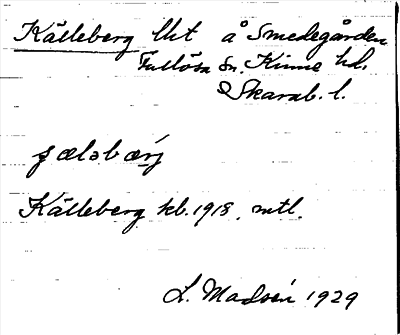 Källeberg lht å Smedegården
Fullösa sn. Kinne hd.
Skarab. l.
Källeberg kb. 1918. mtl.
L. Madsén 1929